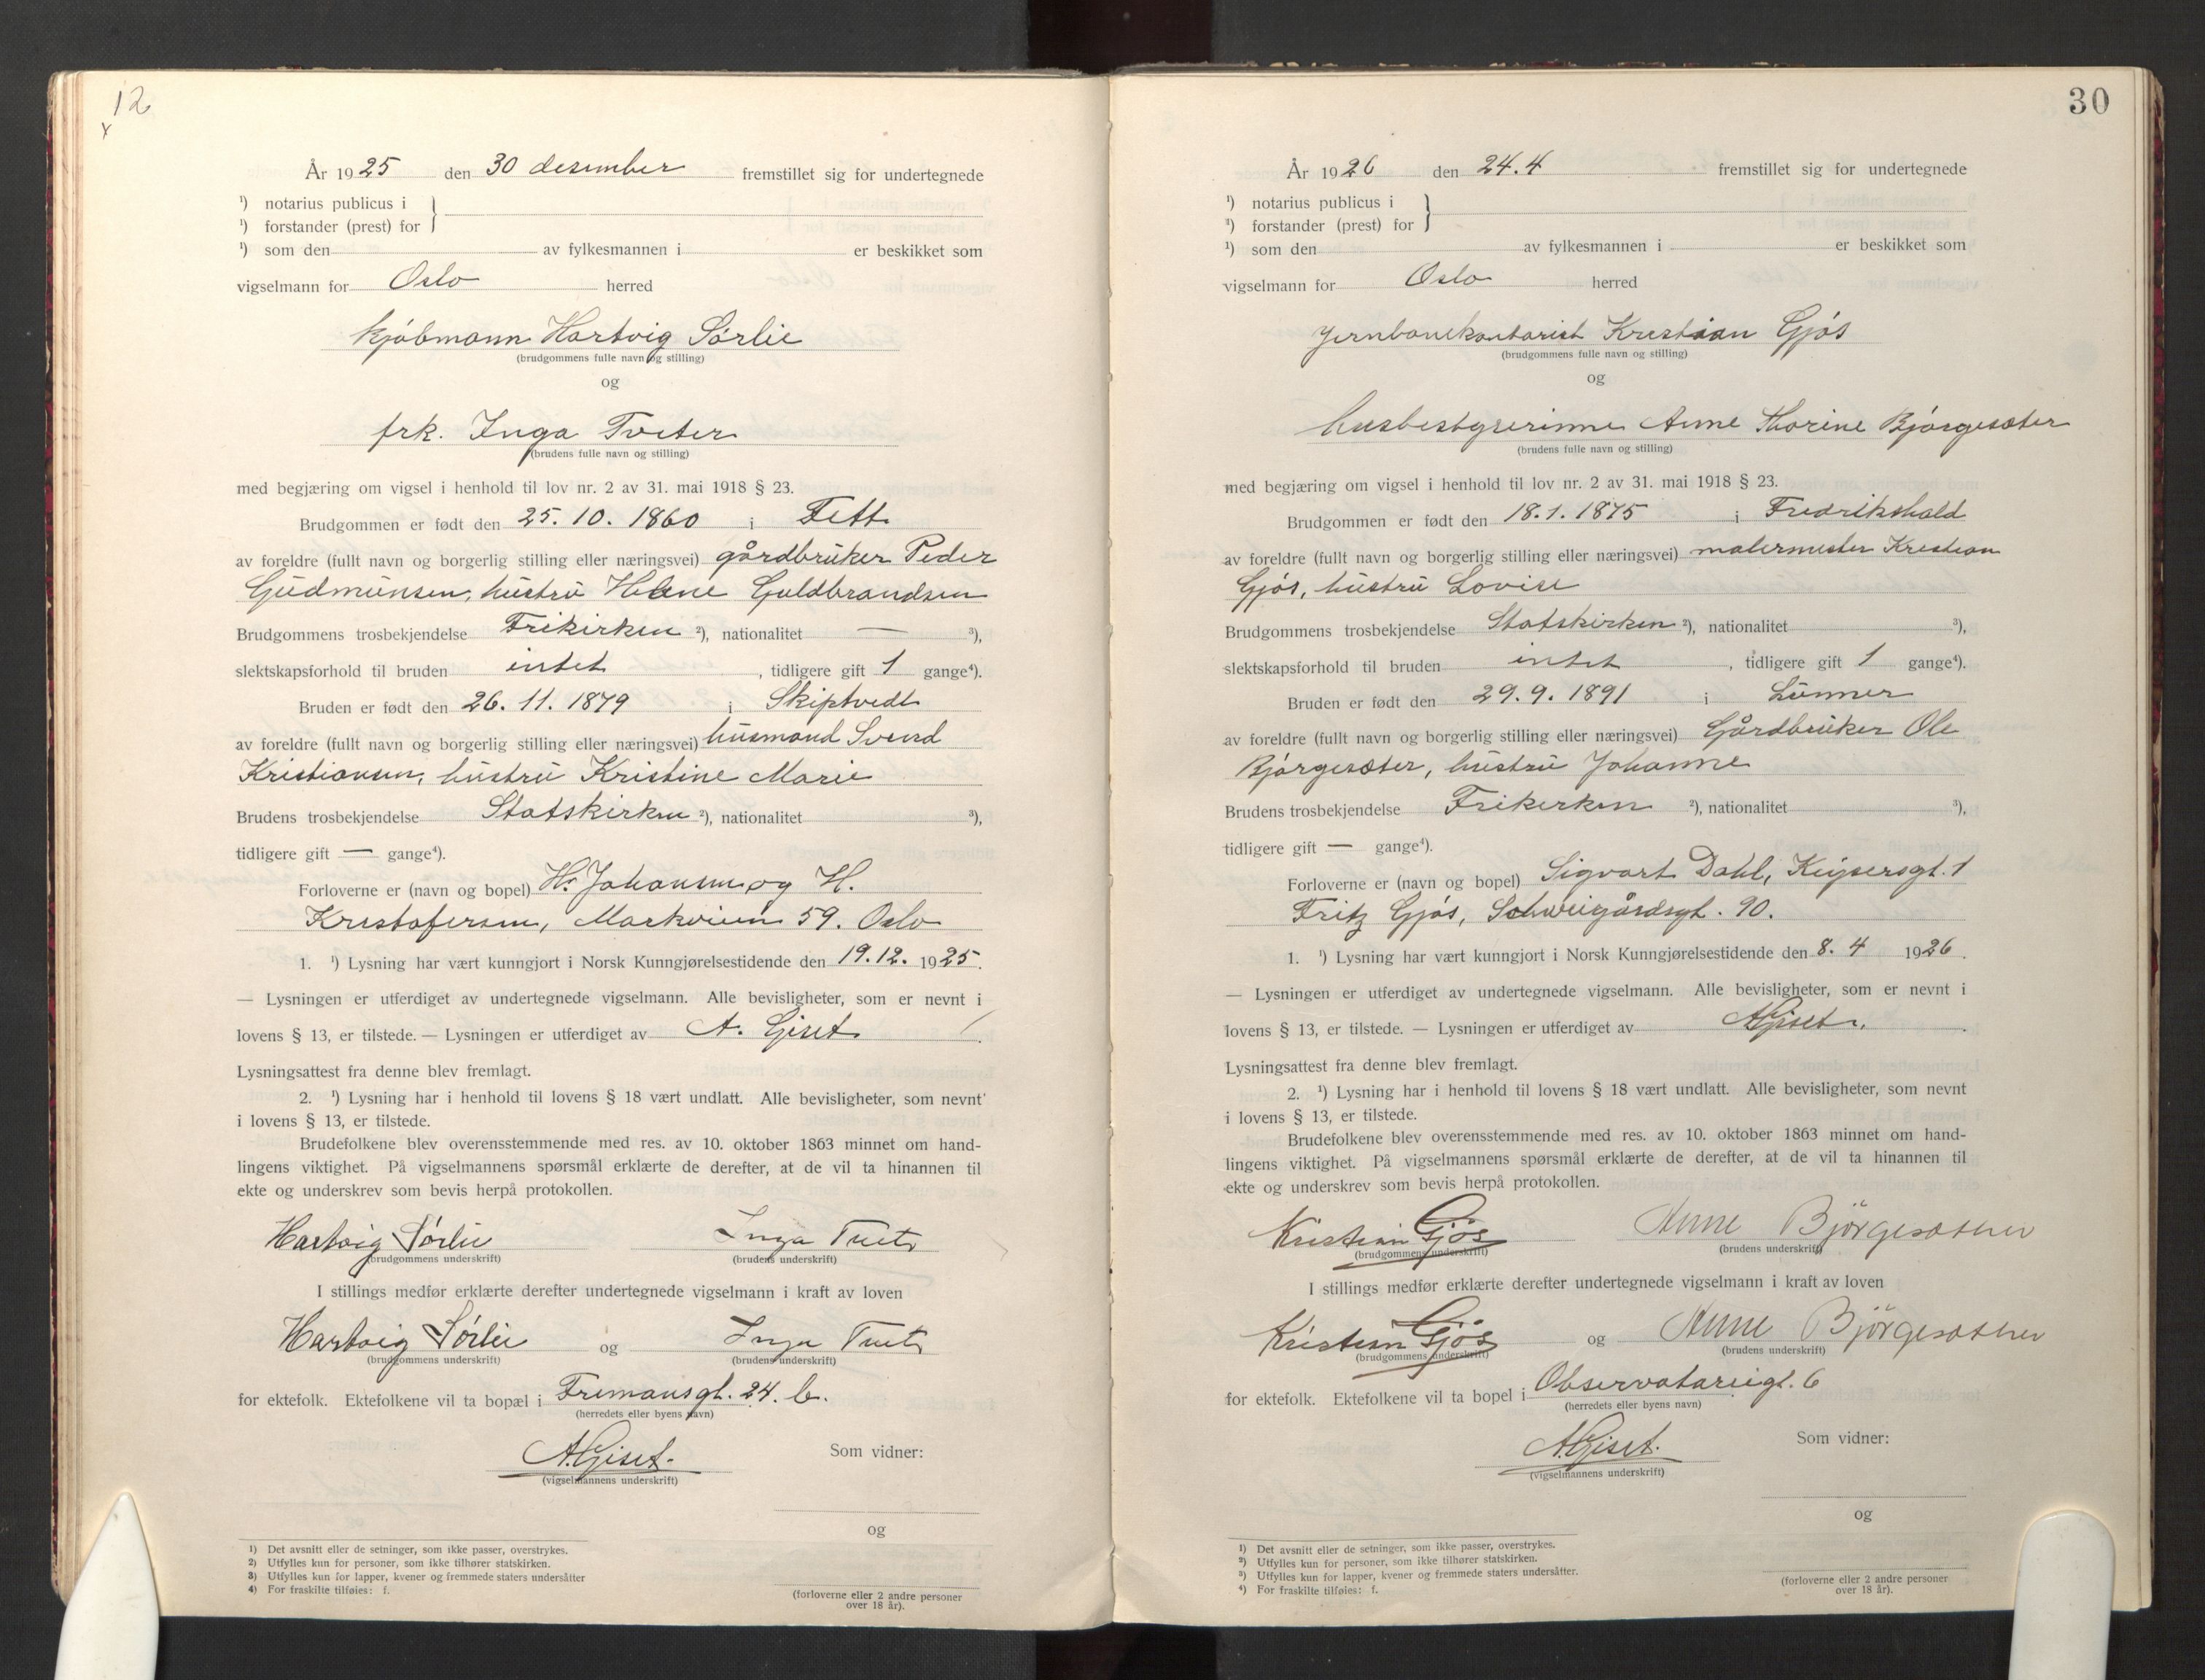 12
År 1925 den 30 desember fremstillet sig for undertegnede
¹) notarius publicus i
¹) forstander (prest) for
¹) som den av fylkesmannen i er beskikket som
vigselmann for Oslo herred
kjøbmann Hartvig Sørlie
(brudgommens fulle navn og stilling)
og
frk. Inga Tveter
(brudens fulle navn og stilling)
med begjæring om vigsel i henhold til lov nr. 2 av 31. mai 1918 § 23.
Brudgommen er født den 25. 10. 1860 i Fett
av foreldre (fullt navn og borgerlig stilling eller næringsvei) gårdbruker Peder
Gudmunsen, hustru Helene Guldbrandsen
Brudgommens trosbekjendelse Frikirken ²), nationalitet — ³),
slektskapsforhold til bruden intet, tidligere gift 1 gange⁴).
Bruden er født den 26. 11. 1879 i Skiptvedt
av foreldre (fullt navn og borgerlig stilling eller næringsvei) husmand Svend
Kristiansen, hustru Kristine Marie
Brudens trosbekjendelse Statskirken ²), nationalitet ³),
tidligere gift — gange⁴).
Forloverne er (navn og bopel) H. Johansen og H.
Kristofersen, Markveien 59. Oslo
1. ¹) Lysning har vært kunngjort i Norsk Kunngjørelsestidende den 19.12. 1925.
— Lysningen er utferdiget av undertegnede vigselmann. Alle bevisligheter, som er nevnt i
lovens § 13, er tilstede. — Lysningen er utferdiget av A. Giset.
Lysningsattest fra denne blev fremlagt.
2. ¹) Lysning har i henhold til lovens § 18 vært undlatt. Alle bevisligheter, som nevnt
i lovens § 13, er tilstede.
Brudefolkene blev overensstemmende med res. av 10. oktober 1863 minnet om hand-
lingens viktighet. På vigselmannens spørsmål erklærte de derefter, at de vil ta hinannen til
ekte og underskrev som bevis herpå protokollen.
Hartvig Sørlie Inga Tveter
(brudgommens underskrift) (brudens underskrift)
I stillings medfør erklærte derefter undertegnede vigselmann i kraft av loven
Hartvig Sørlie og Inga Tveter
(brudgommens underskrift) (brudens underskrift)
for ektefolk. Ektefolkene vil ta bopæl i Fremansgt. 24. b.
(herredets eller byens navn)
A. Giset.
(vigselmannens underskrift)
Som vidner:
og
(forloverne eller 2 andre personer
over 18 år).
1) Det avsnitt eller de setninger, som ikke passer, overstrykes.
2) Utfylles kun for personer, som ikke tilhører statskirken.
3) Utfylles kun for lapper, kvener og fremmede staters undersåtter
4) For fraskilte tilføies: f.
30
År 1926 den 24.4 fremstillet sig for undertegnede
¹) notarius publicus i
¹) forstander (prest) for
¹) som den av fylkesmannen i er beskikket som
vigselmann for Oslo herred
jernbanekontorist Kristian Gjøs
(brudgommens fulle navn og stilling)
og
husbestyrerinne Anne Thorine Bjørgesæter
(brudens fulle navn og stilling)
med begjæring om vigsel i henhold til lov nr. 2 av 31. mai 1918 § 23.
Brudgommen er født den 18.1. 1875 i Fredrikshald
av foreldre (fullt navn og borgerlig stilling eller næringsvei) malermester Kristian
Gjøs, hustru Lovise
Brudgommens trosbekjendelse Statskirken ²), nationalitet ³),
slektskapsforhold til bruden intet, tidligere gift 1 gange⁴).
Bruden er født den 29.9. 1891 i Lunner
av foreldre (fullt navn og borgerlig stilling eller næringsvei) Gårdbruker Ole
Bjørgesæter, hustru Johanne
Brudens trosbekjendelse Frikirken ²), nationalitet ³),
tidligere gift — gange⁴).
Forloverne er (navn og bopel) Sigvart Dahl, Keysersgt. 1
Fritz Gjøs, Schweigårdsgt. 90.
1. ¹) Lysning har vært kunngjort i Norsk Kunngjørelsestidende den 8. 4 1926.
— Lysningen er utferdiget av undertegnede vigselmann. Alle bevisligheter, som er nevnt i
lovens § 13, er tilstede. — Lysningen er utferdiget av A Giset.
Lysningsattest fra denne blev fremlagt.
2. ¹) Lysning har i henhold til lovens § 18 vært undlatt. Alle bevisligheter, som nevnt
i lovens § 13, er tilstede.
Brudefolkene blev overensstemmende med res. av 10. oktober 1863 minnet om hand-
lingens viktighet. På vigselmannens spørsmål erklærte de derefter, at de vil ta hinannen til
ekte og underskrev som bevis herpå protokollen.
Kristian Gjös Anne Björgesæther
(brudgommens underskrift) (brudens underskrift)
I stillings medfør erklærte derefter undertegnede vigselmann i kraft av loven
Kristian Gjös og Anne Björgesæther
(brudgommens underskrift) (brudens underskrift)
for ektefolk. Ektefolkene vil ta bopel i Observatoriegt. 6
(herredets eller byens navn)
A Giset.
(vigselmannens underskrift)
Som vidner:
og
(forloverne eller 2 andre personer
over 18 år).
¹) Det avsnitt eller de setninger, som ikke passer, overstrykes.
²) Utfylles kun for personer, som ikke tilhører statskirken.
³) Utfylles kun for lapper, kvener og fremmede staters undersåtter.
⁴) For fraskilte tilføies: f.